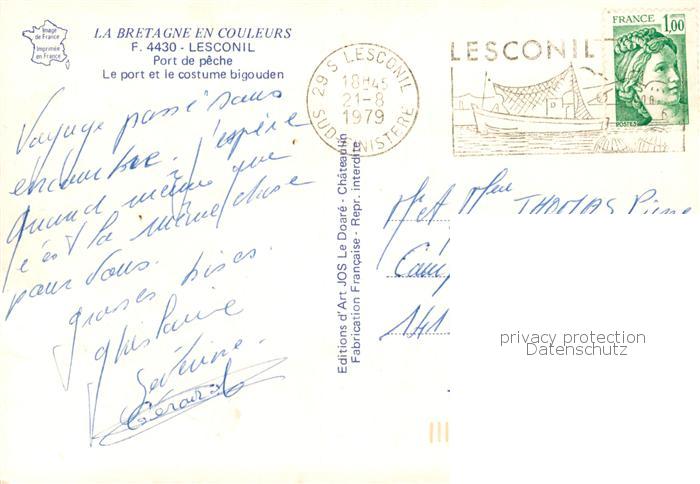 Image
de France
Imprimée
en France
LA BRETAGNE EN COULEURS
F. 4430 - LESCONIL
Port de pêche
Le port et le costume bigouden
29 S LESCONIL
18H45
21-8
1979
SUD FINISTERE
LESCONIL
FRANCE
1,00
POSTES
Voyage passé sans
encombre. J'espère
quand même que
c'est la même chose
pour vous.
grosses bises.
Ghislaine
Séverine.
Gérard
Editions d'Art JOS Le Doaré - Châteaulin
Fabrication Française - Repr. interdite
Mr et Mme THOMAS Pierre
141
privacy protection
Datenschutz